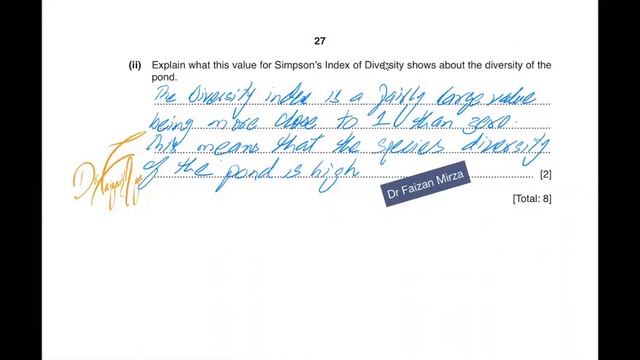 27
(ii) Explain what this value for Simpson's Index of Diversity shows about the diversity of the
pond.
The Diversity index is a fairly large value
being more close to 1 than zero.
This means that the species diversity
of the pond is high
[2]
Dr Faizan Mirza
[Total: 8]